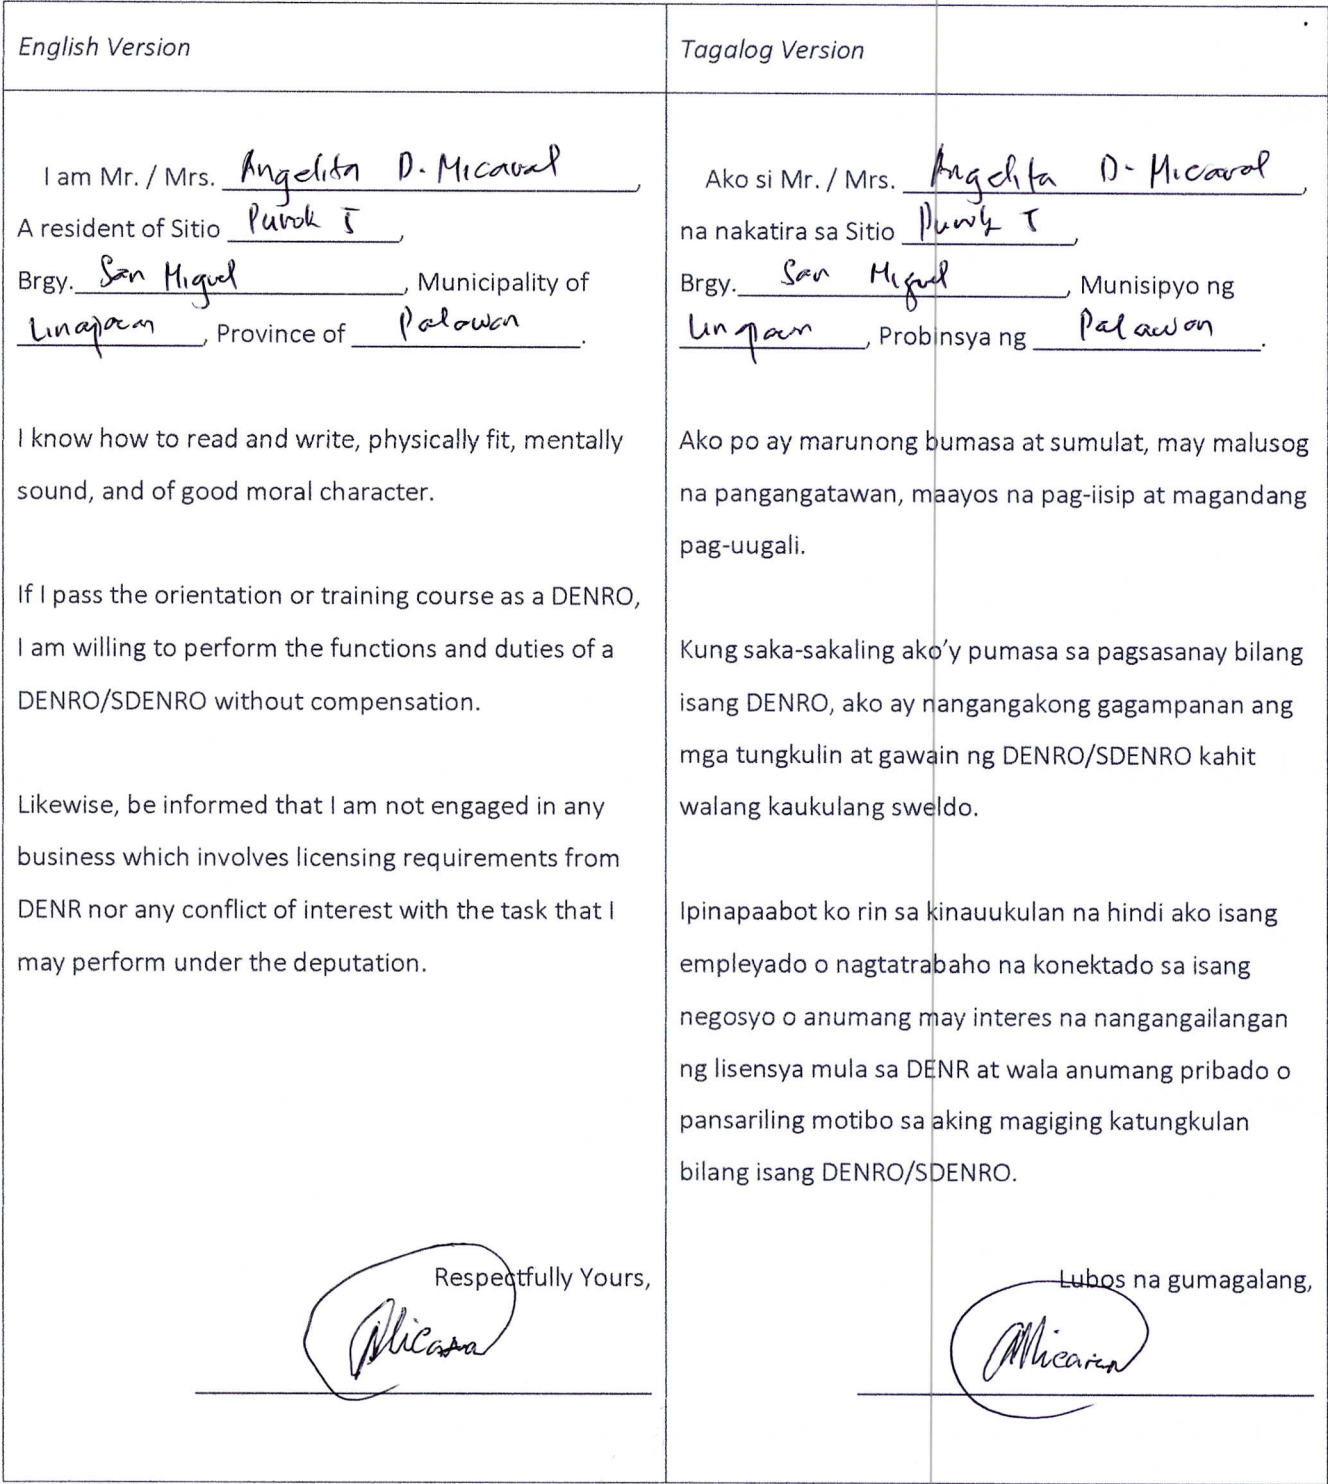 English Version
I am Mr. / Mrs. Angelita D. Micaral,
A resident of Sitio Purok I,
Brgy. San Miguel, Municipality of
Linapacan, Province of Palawan.
I know how to read and write, physically fit, mentally
sound, and of good moral character.
If I pass the orientation or training course as a DENRO,
I am willing to perform the functions and duties of a
DENRO/SDENRO without compensation.
Likewise, be informed that I am not engaged in any
business which involves licensing requirements from
DENR nor any conflict of interest with the task that I
may perform under the deputation.
Respectfully Yours,
Tagalog Version
Ako si Mr. / Mrs. Angelita D. Micaral,
na nakatira sa Sitio Purok I,
Brgy. San Miguel, Munisipyo ng
Linapacan, Probinsya ng Palawan.
Ako po ay marunong bumasa at sumulat, may malusog
na pangangatawan, maayos na pag-iisip at magandang
pag-uugali.
Kung saka-sakaling ako'y pumasa sa pagsasanay bilang
isang DENRO, ako ay nangangakong gagampanan ang
mga tungkulin at gawain ng DENRO/SDENRO kahit
walang kaukulang sweldo.
Ipinapaabot ko rin sa kinauukulan na hindi ako isang
empleyado o nagtatrabaho na konektado sa isang
negosyo o anumang may interes na nangangailangan
ng lisensya mula sa DENR at wala anumang pribado o
pansariling motibo sa aking magiging katungkulan
bilang isang DENRO/SDENRO.
Lubos na gumagalang,